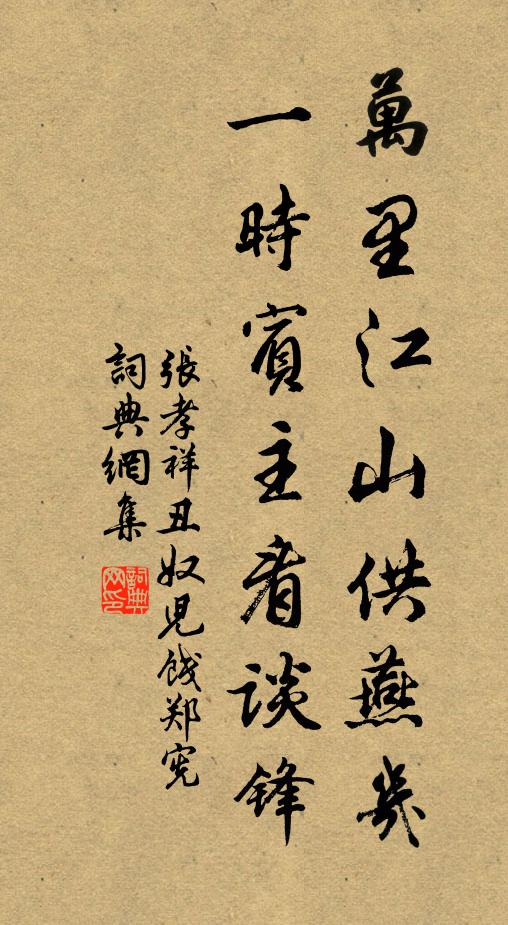 萬里江山供燕幾
一時賓主看談鋒
張孝祥丑奴兒餞郑宪
詞典網集
詞典网印